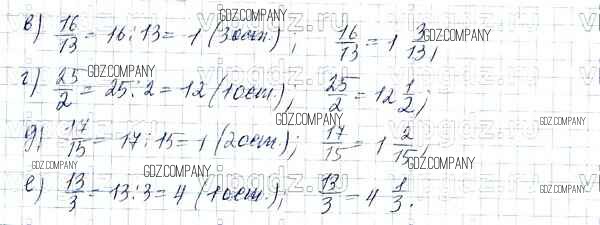 в) 16/13 = 16 : 13 = 1 (3 ост.), 16/13 = 1 3/13;
г) 25/2 = 25 : 2 = 12 (1 ост.); 25/2 = 12 1/2;
д) 17/15 = 17 : 15 = 1 (2 ост.); 17/15 = 1 2/15;
е) 13/3 = 13 : 3 = 4 (1 ост.); 13/3 = 4 1/3.
GDZ.COMPANY
GDZ.COMPANY
GDZ.COMPANY
GDZ.COMPANY
GDZ.COMPANY
GDZ.COMPANY
GDZ.COMPANY
GDZ.COMPANY
GDZ.COMPANY
GDZ.COMPANY